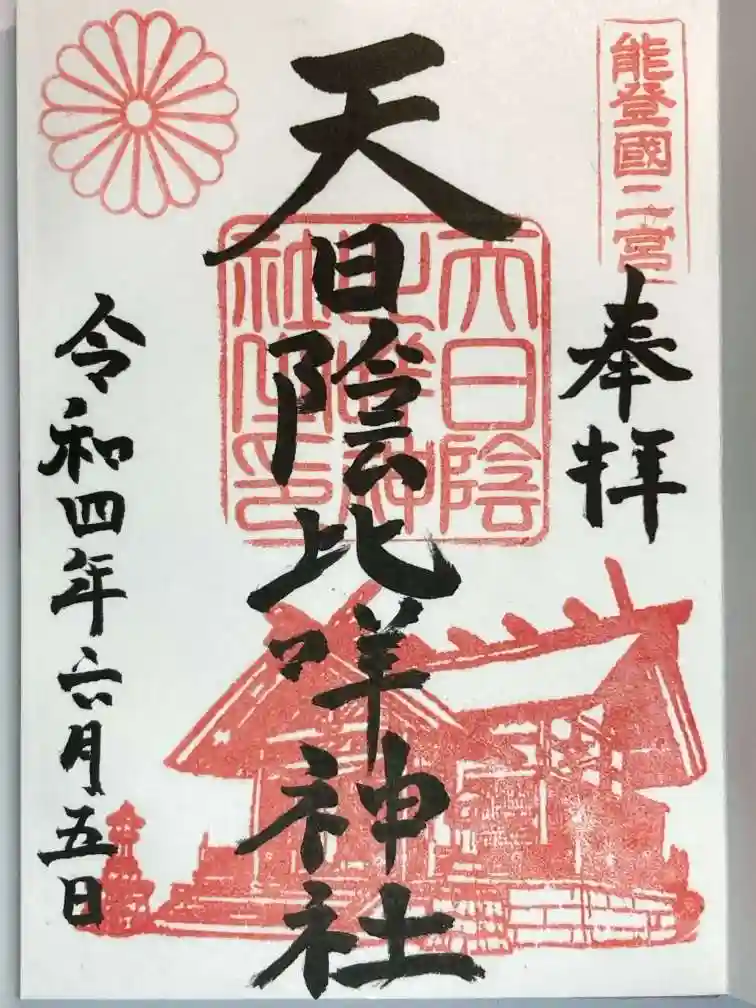 能登國二宮
奉拝
天日陰比咩神社
天日陰
比咩神
社之印
令和四年六月五日